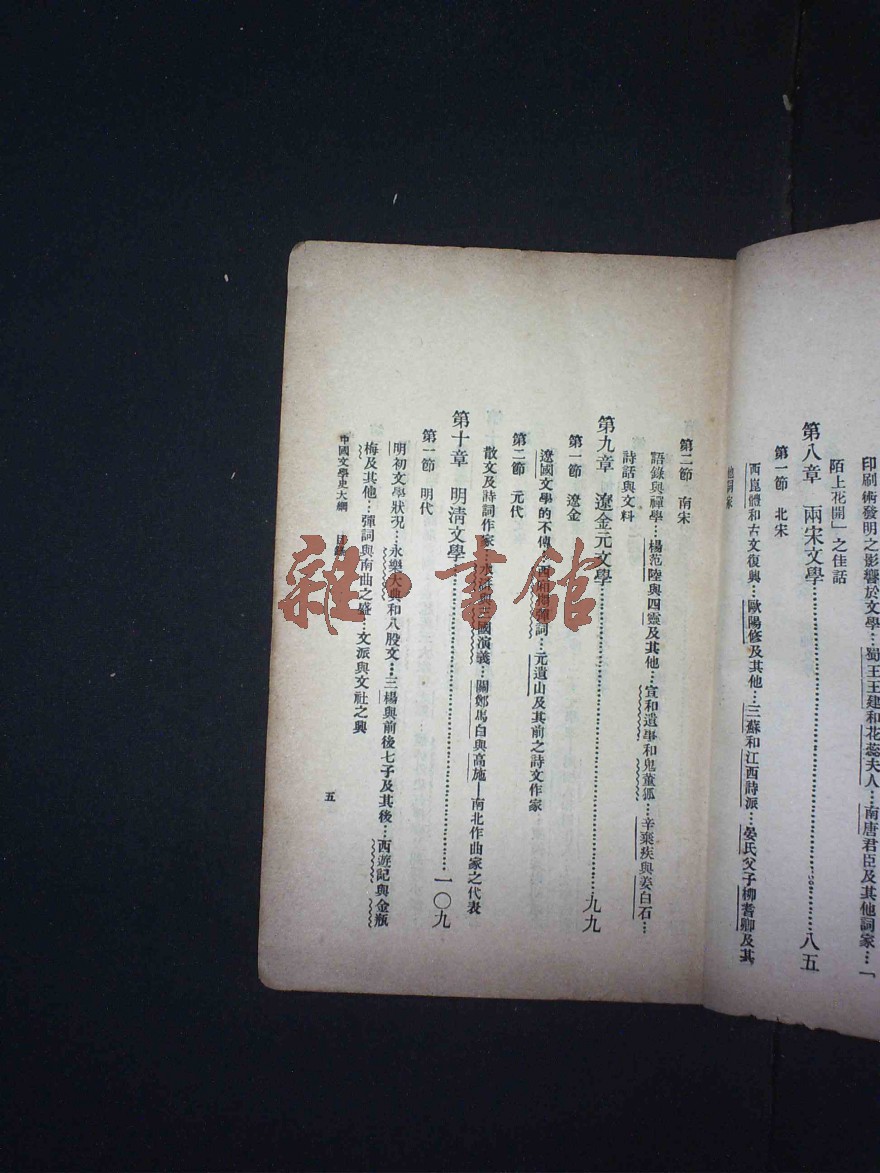 印刷術發明之影響於文學…蜀王王建和花蕊夫人…南唐君臣及其他詞家…「
陌上花開」之佳話
第八章　兩宋文學……八五
第一節　北宋
西崑體和古文復興…歐陽修及其他…三蘇和江西詩派…晏氏父子柳耆卿及其
他詞家
第二節　南宋
語錄與禪學…楊范陸與四靈及其他…宣和遺事和鬼董狐…辛棄疾與姜白石…
詩話與文料
第九章　遼金元文學……九九
第一節　遼金
遼國文學的不傳…西廂搊彈詞…元遺山及其前之詩文作家
第二節　元代
散文及詩詞作家…水滸與三國演義…關鄭馬白與高施—南北作曲家之代表
第十章　明清文學……一〇九
第一節　明代
明初文學狀況…永樂大典和八股文…三楊與前後七子及其後…西遊記與金瓶
梅及其他…彈詞與南曲之盛…文派與文社之興
中國文學史大綱　目錄
五
雜·書館